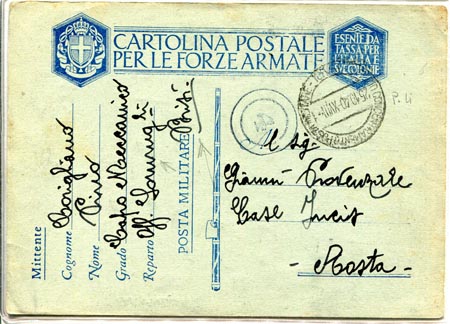 CARTOLINA POSTALE
PER LE FORZE ARMATE
ESENTE DA
TASSA PER
L'ITALIA E
SUE COLONIE
Mittente
Cognome Corigliano
Nome Pino
Grado Capo Meccanico
Reparto
POSTA MILITARE
P. U
Al Sig.
Gianni Provenzale
Case Incis
- Aosta -